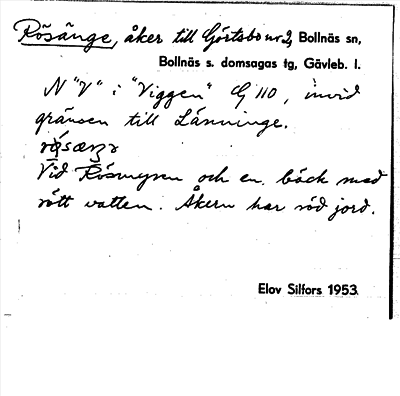 Rösänge, åker till Görtsbo nr 2, Bollnäs sn,
Bollnäs s. domsagas tg, Gävleb. l.
N "V" i "Viggen" G 110, invid
gränsen till Länninge.
Vid Rösmyren och en bäck med
rött vatten. Åkern har röd jord.
Elov Silfors 1953.